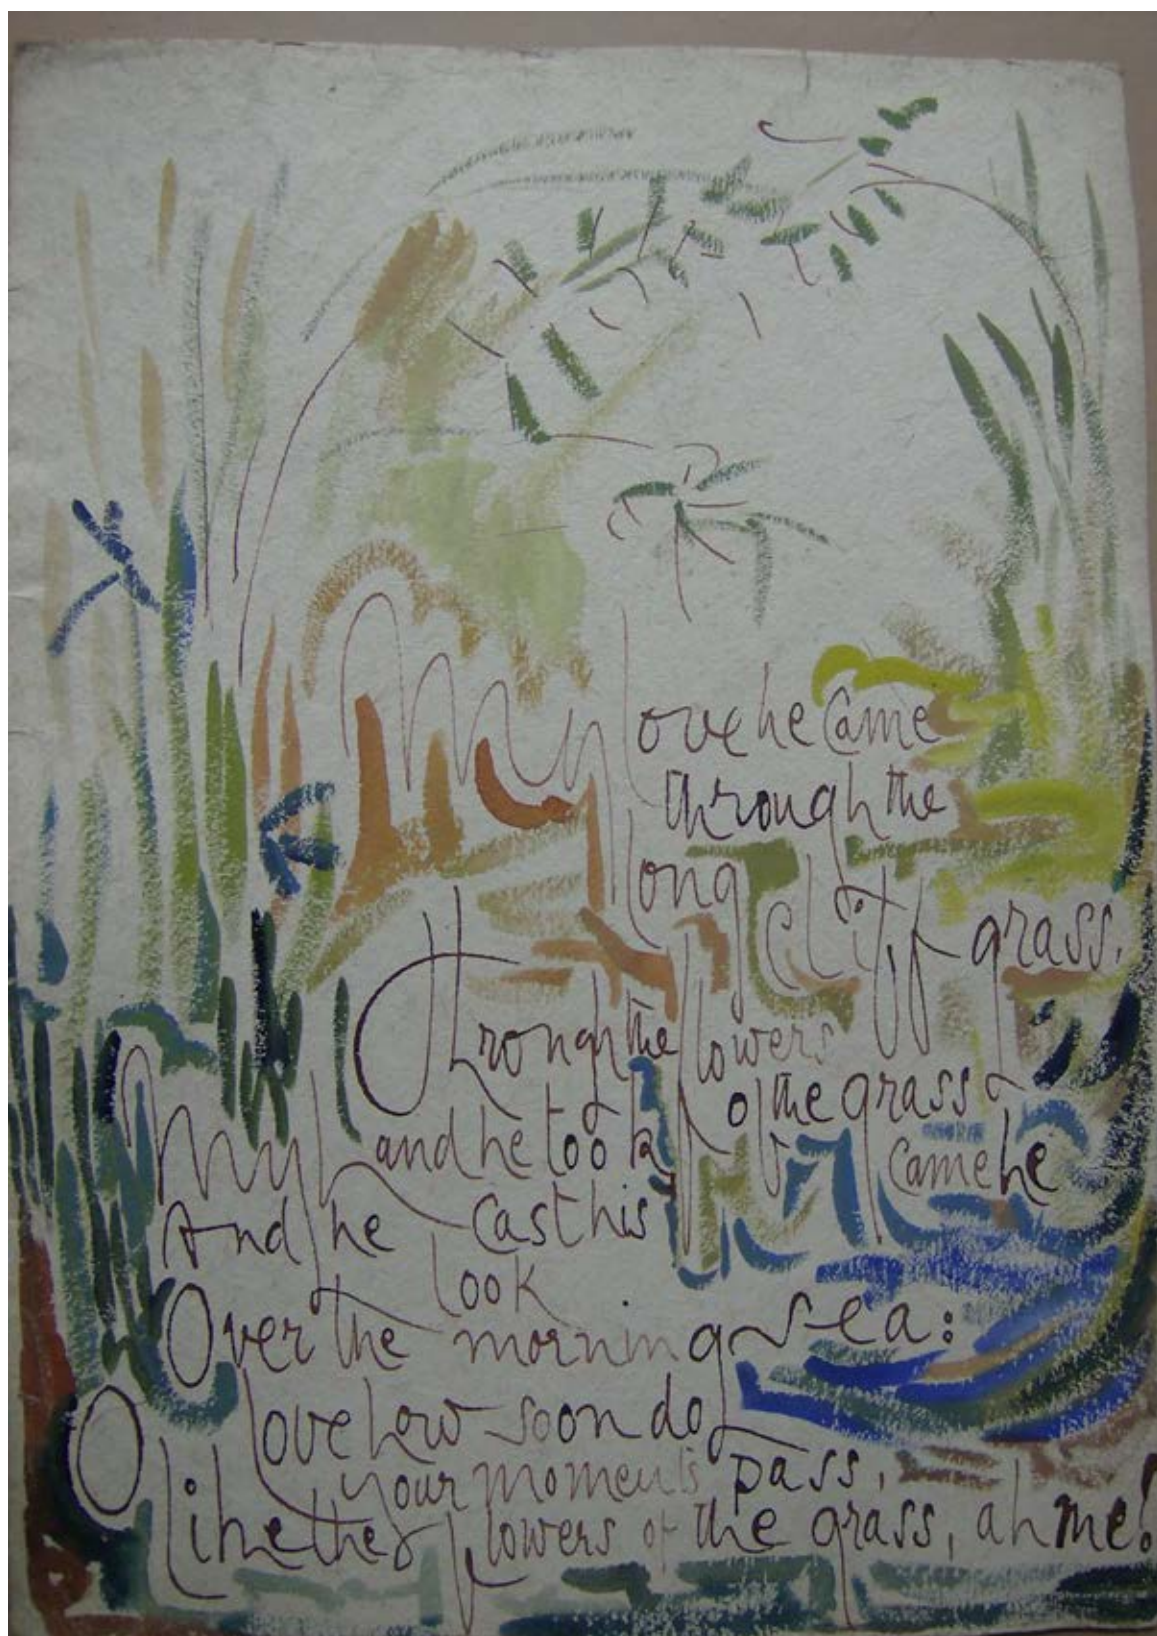 My love he came
through the
long cliff grass.
Through the flowers
of the grass came he
My hand he took
And he cast his
look
Over the morning sea:
O love how soon do
your moments pass,
like the flowers of the grass, ah me!